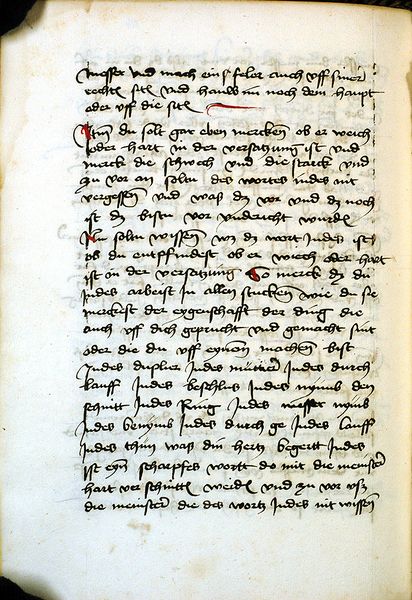 messer vnd mach ein feler auch vff siner
rechten siten vnd hauw im noch dem haupt
oder vff die siten
Nun du solt gar eben mercken ob er weich
oder hart in der versatzung ist vnd
merck die schwech vnd die starck vnd
zu vor an soltu des wortes indes nit
vergessen vnd was dz vor vnd dz noch
ist dz bistu vor vndericht wurden
Nu soltu wissen wz dz wort Indes ist
ob du entpfindest ob er weich oder hart
ist in der versatzung So merck dz du
Indes arbeist in allen stucken wie du sie
merckest der eygenschafft der ding die
auch vff dich geprucht vnd gemacht sint
oder die du vff eynen machen bist
Indes duplier Indes mutier Indes durch
lauff Indes beschlus Indes nymb den
schnitt Indes Ring Indes messer nymb
Indes benymb Indes durch ge Indes lauff
Indes thun was din hertz begertt Indes
ist eyn scharpfes wortt do mit die meinster
hart verschnitten werden vnd zu vor vsz
die meinster die des wortz Indes nit wissen